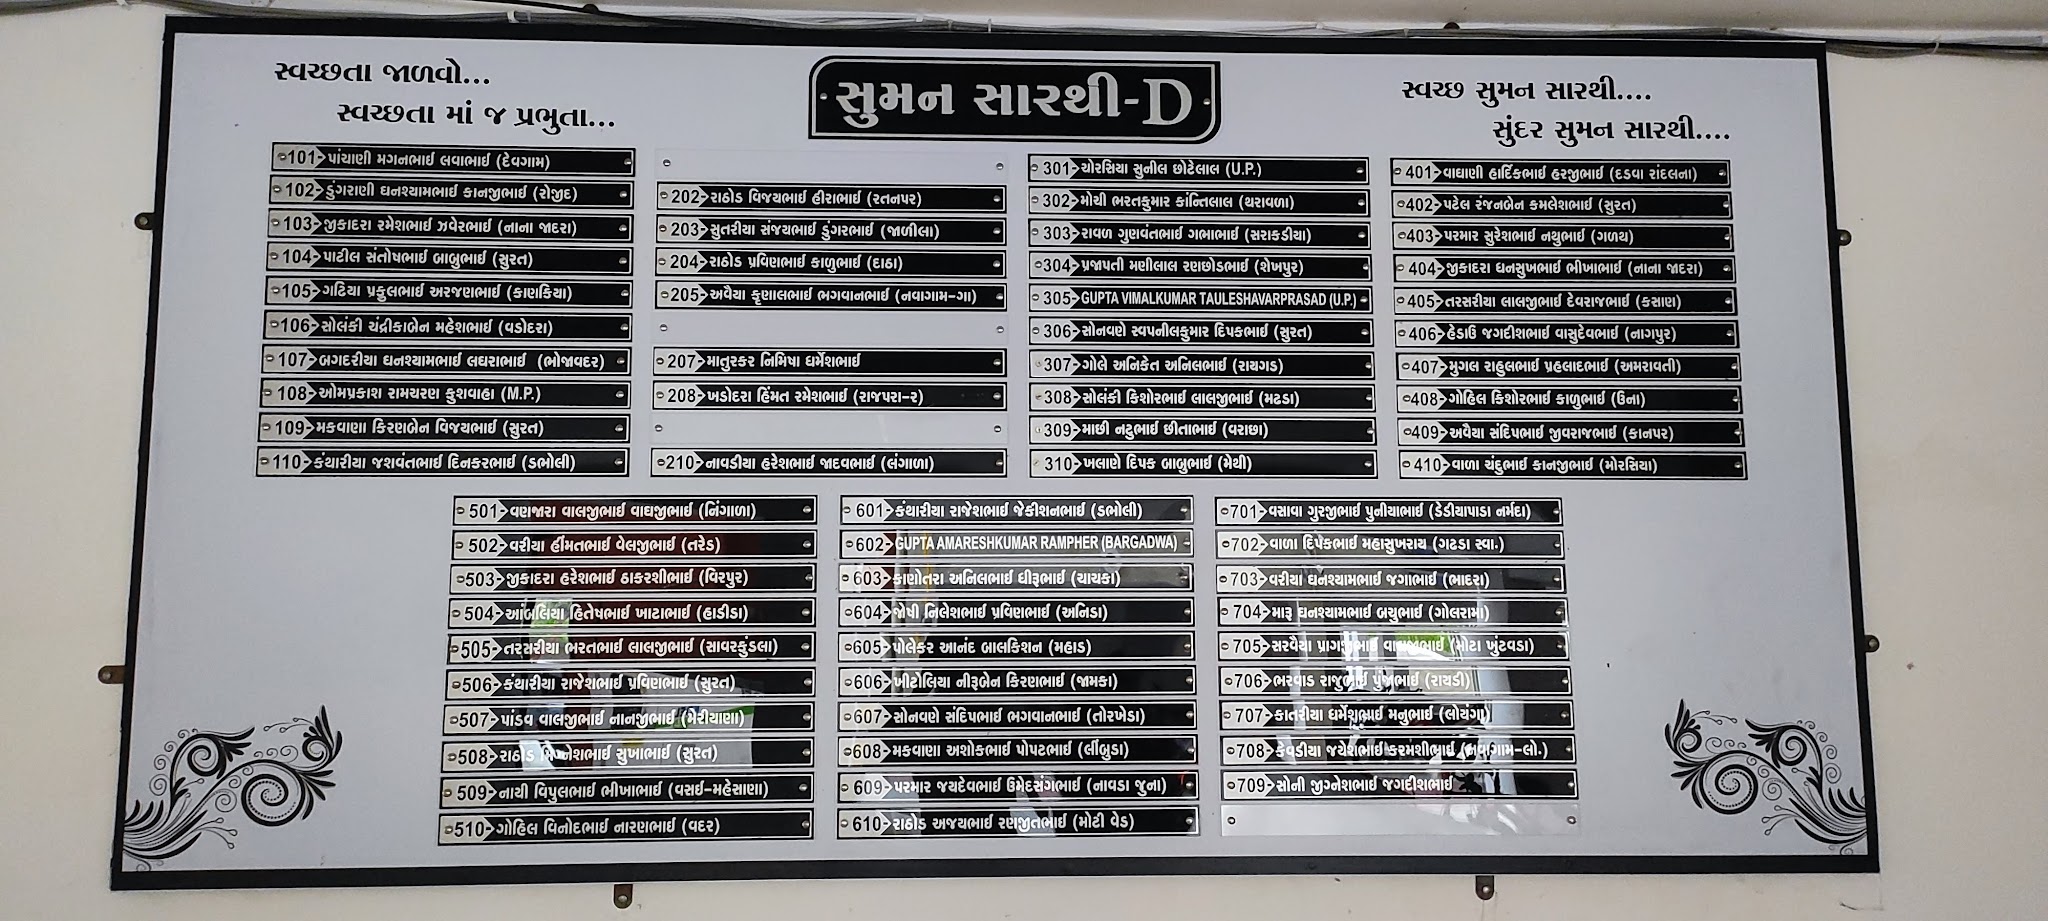 સ્વચ્છતા જાળવો...
સ્વચ્છતા માં જ પ્રભુતા...
સુમન સારથી-D
સ્વચ્છ સુમન સારથી....
સુંદર સુમન સારથી....
101 પાંચાણી મગનભાઈ લવાભાઈ (દેવગામ)
102 ડુંગરાણી ઘનશ્યામભાઈ કાનજીભાઈ (રોજીદ)
103 જીકાદરા રમેશભાઈ ઝવેરભાઈ (નાના જાદરા)
104 પાટીલ સંતોષભાઈ બાબુભાઈ (સુરત)
105 ગઢિયા પ્રફુલભાઈ અરજણભાઈ (કાણકિયા)
106 સોલંકી ચંદ્રીકાબેન મહેશભાઈ (વડોદરા)
107 બગદરીયા ઘનશ્યામભાઈ લઘરાભાઈ (ભોજાવદર)
108 ઓમપ્રકાશ રામચરણ કુશવાહા (M.P.)
109 મકવાણા કિરણબેન વિજયભાઈ (સુરત)
110 કંથારીયા જશવંતભાઈ દિનકરભાઈ (ડભોલી)
202 રાઠોડ વિજયભાઈ હીરાભાઈ (રતનપર)
203 સુતરીયા સંજયભાઈ ડુંગરભાઈ (જાળીલા)
204 રાઠોડ પ્રવિણભાઈ કાળુભાઈ (દાઠા)
205 અવૈયા કૃણાલભાઈ ભગવાનભાઈ (નવાગામ-ગા)
207 માતુરકર નિમિષા ધર્મેશભાઈ
208 ખડોદરા હિંમત રમેશભાઈ (રાજપરા-ર)
210 નાવડીયા હરેશભાઈ જાદવભાઈ (લંગાળા)
301 ચોરસિયા સુનીલ છોટેલાલ (U.P.)
302 મોચી ભરતકુમાર કાંન્તિલાલ (થરાવળા)
303 રાવળ ગુણવંતભાઈ ગભાભાઈ (સરાકડીયા)
304 પ્રજાપતી મણીલાલ રણછોડભાઈ (શેખપુર)
305 GUPTA VIMALKUMAR TAULESHAVARPRASAD (U.P.)
306 સોનવણે સ્વપનીલકુમાર દિપકભાઈ (સુરત)
307 ગોલે અનિકેત અનિલભાઈ (રાયગડ)
308 સોલંકી કિશોરભાઈ લાલજીભાઈ (મઢડા)
309 માછી નટુભાઈ છીતાભાઈ (વરાછા)
310 ખલાણે દિપક બાબુભાઈ (મેથી)
401 વાઘાણી હાર્દિકભાઈ હરજીભાઈ (દડવા રાંદલના)
402 પટેલ રંજનબેન કમલેશભાઈ (સુરત)
403 પરમાર સુરેશભાઈ નથુભાઈ (ગળથ)
404 જીકાદરા ધનસુખભાઈ ભીખાભાઈ (નાના જાદરા)
405 તરસરીયા લાલજીભાઈ દેવરાજભાઈ (કસાણ)
406 હેડાઉ જગદીશભાઈ વાસુદેવભાઈ (નાગપુર)
407 મુગલ રાહુલભાઈ પ્રહલાદભાઈ (અમરાવતી)
408 ગોહિલ કિશોરભાઈ કાળુભાઈ (ઉના)
409 અવૈયા સંદિપભાઈ જીવરાજભાઈ (કાનપર)
410 વાળા ચંદુભાઈ કાનજીભાઈ (મોરસિયા)
501 વણજારા વાલજીભાઈ વાઘજીભાઈ (નિંગાળા)
502 વરીયા હીંમતભાઈ વેલજીભાઈ (તરેડ)
503 જીકાદરા હરેશભાઈ ઠાકરશીભાઈ (વિરપુર)
504 આંબલિયા હિતેષભાઈ ખાટાભાઈ (હાડીડા)
505 તરસરીયા ભરતભાઈ લાલજીભાઈ (સાવરકુંડલા)
506 કંથારીયા રાજેશભાઈ પ્રવિણભાઈ (સુરત)
507 પાંડવ વાલજીભાઈ નાનજીભાઈ (મેરીયાણા)
508 રાઠોડ સુખાભાઈ (સુરત)
509 નાયી વિપુલભાઈ ભીખાભાઈ (વસઈ-મહેસાણા)
510 ગોહિલ વિનોદભાઈ નારણભાઈ (વદર)
601 કંથારીયા રાજેશભાઈ જેકીશનભાઈ (ડભોલી)
602 GUPTA AMARESHKUMAR RAMPHER (BARGADWA)
603 કાણોતરા અનિલભાઈ ધીરૂભાઈ (ચાચકા)
604 જોષી નિલેશભાઈ પ્રવિણભાઈ (અનિડા)
605 પોલેકર આનંદ બાલકિશન (મહાડ)
606 ખીટોલિયા નીરૂબેન કિરણભાઈ (જામકા)
607 સોનવણે સંદિપભાઈ ભગવાનભાઈ (તોરખેડા)
608 મકવાણા અશોકભાઈ પોપટભાઈ (લીંબુડા)
609 પરમાર જયદેવભાઈ ઉમેદસંગભાઈ (નાવડા જુના)
610 રાઠોડ અજયભાઈ રણજીતભાઈ (મોટી વેડ)
701 વસાવા ગુરજીભાઈ પુનીયાભાઈ (ડેડીયાપાડા નર્મદા)
702 વાળા દિપેકભાઈ મહાસુખરાય (ગઢડા સ્વા.)
703 વરીયા ઘનશ્યામભાઈ જગાભાઈ (ભાદરા)
704 મારૂ ઘનશ્યામભાઈ બચુભાઈ (ગોલરામા)
705 સરવૈયા પ્રાગજીભાઈ (મોટા ખુંટવડા)
706 ભરવાડ રાજુભાઈ પુંજાભાઈ (રાયડી)
707 કાતરીયા ધર્મેશભાઈ મનુભાઈ (લોયંગા)
708 કેવડીયા જયેશભાઈ કરમશીભાઈ (નવાગામ-લો.)
709 સોની જીગ્નેશભાઈ જગદીશભાઈ